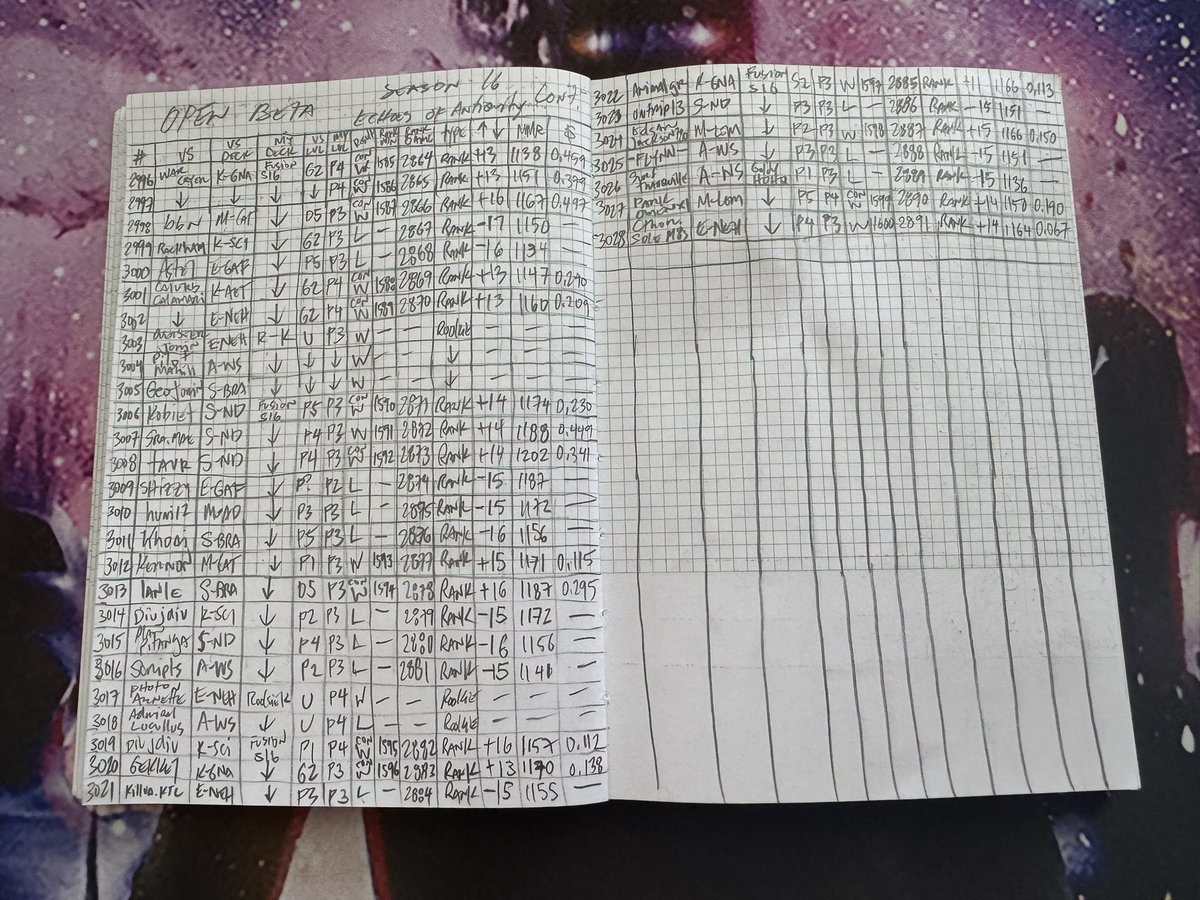 SEASON 16
OPEN BETA Echoes of Antiquity CONT.
# VS VS DECK MY DECK VS LVL MY LVL RANK WIN RANK GAME TYPE ↑↓ MMR $
2996 K-GNA Fusion S16 G2 P4 CON W 1585 2864 RANK +13 1138 0.459
2997 ↓ ↓ ↓ ↓ P4 CON W 1586 2865 RANK +13 1151 0.379
2998 M-CAT ↓ D5 P3 CON W 1587 2866 RANK +16 1167 0.497
2999 Rackham K-SCI ↓ G2 P3 L - 2867 RANK -17 1150 —
3000 Astel E-GAF ↓ P5 P3 L - 2868 RANK -16 1134 —
3001 K-AET ↓ G2 P4 CON W 1588 2869 RANK +13 1147 0.290
3002 ↓ E-NEH ↓ G2 P4 CON W 1589 2870 RANK +13 1160 0.209
3003 E-NEH R-K U P3 W — — Rookie — — —
3004 A-WS ↓ ↓ ↓ W — — ↓ — — —
3005 Geojomin S-BRA ↓ ↓ ↓ W — — ↓ — — —
3006 Kobiet S-ND Fusion S16 P5 P3 CON W 1590 2871 RANK +14 1174 0.230
3007 S-ND ↓ P4 P3 W 1591 2872 RANK +14 1188 0.449
3008 TAVR S-ND ↓ P4 P3 CON W 1592 2873 RANK +14 1202 0.341
3009 Shizzy E-GAF ↓ P? P2 L - 2874 RANK -15 1187 —
3010 ↓ P3 P3 L - 2875 RANK -15 1172 —
3011 Khoaj S-BRA ↓ P5 P3 L - 2876 RANK -16 1156 —
3012 Kennon M-CAT ↓ P1 P3 W 1593 2877 RANK +15 1171 0.115
3013 Ianle S-BRA ↓ D5 P3 CON W 1594 2878 RANK +16 1187 0.295
3014 Divjdiv K-SCI ↓ P2 P3 L - 2879 RANK -15 1172 —
3015 Pitanga S-ND ↓ P4 P3 L - 2880 RANK -16 1156 —
3016 Sompls A-WS ↓ P2 P3 L - 2881 RANK -15 1141 —
3017 Photon Annette E-NEH U P4 W — — Rookie — — —
3018 Admiral Lucullus A-WS ↓ U P4 L — — Rookie — — —
3019 Divjdiv K-SCI Fusion S16 P1 P4 CON W 1595 2882 RANK +16 1157 0.112
3020 Gekkej K-GNA ↓ G2 P3 CON W 1596 2883 RANK +13 1170 0.138
3021 Killua.KTC E-NEH ↓ P3 P3 L - 2884 RANK -15 1155 —
3022 K-GNA Fusion S16 S2 P3 W 1597 2885 RANK +11 1166 0.113
3023 ontrip13 S-ND ↓ P3 P3 L - 2886 RANK -15 1151 —
3024 M-LOM ↓ P2 P3 W 1598 2887 RANK +15 1166 0.150
3025 FLYNN A-WS ↓ P3 P2 L - 2888 RANK -15 1151 —
3026 A-NS P1 P3 L - 2889 RANK -15 1136 —
3027 M-LOM ↓ P5 P4 CON W 1599 2890 RANK +14 1150 0.190
3028 E-NEH ↓ P4 P3 W 1600 2891 RANK +14 1164 0.067